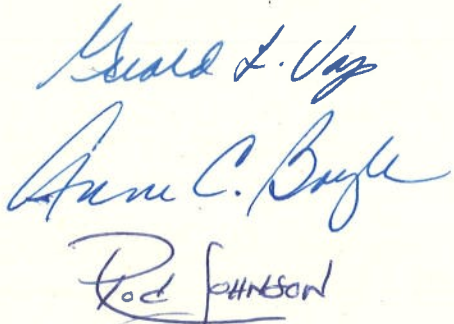 Gerald L. Vap
Anne C. Boyle
Rod Johnson